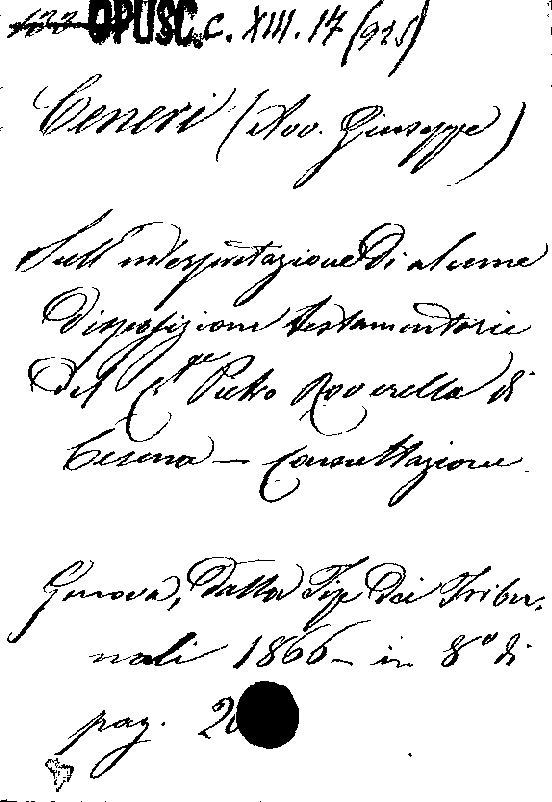 OPUSC. C. XIII. 17 (925)
Ceneri (Avv. Giuseppe)
Sull'interpretazione di alcune
disposizioni testamentarie
del Cte Pietro Roverella di
Cesena — Consultazione
Genova, dalla Tip. dei Tribu-
nali 1866 — in 8° di
pag.